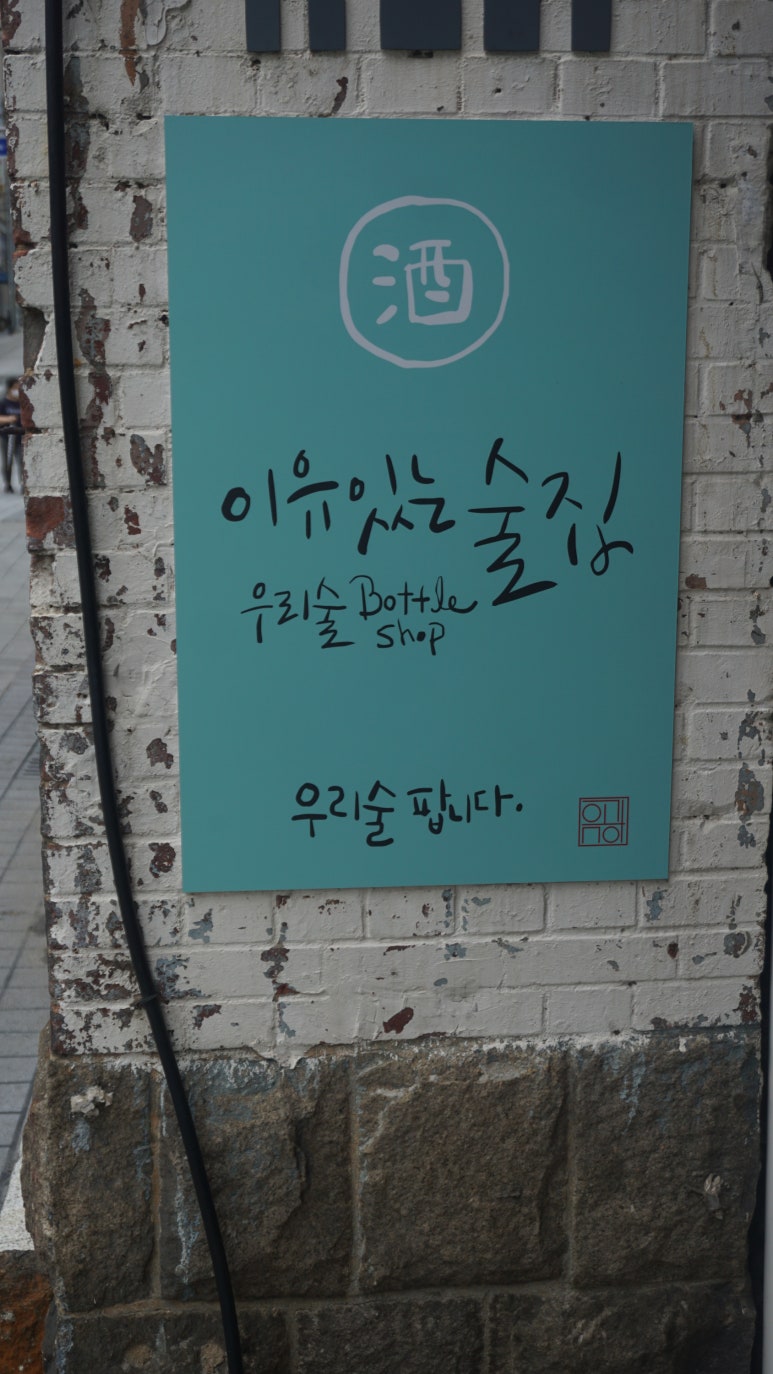 酒
이유있는 술집
우리술 Bottle
shop
우리술 팝니다.